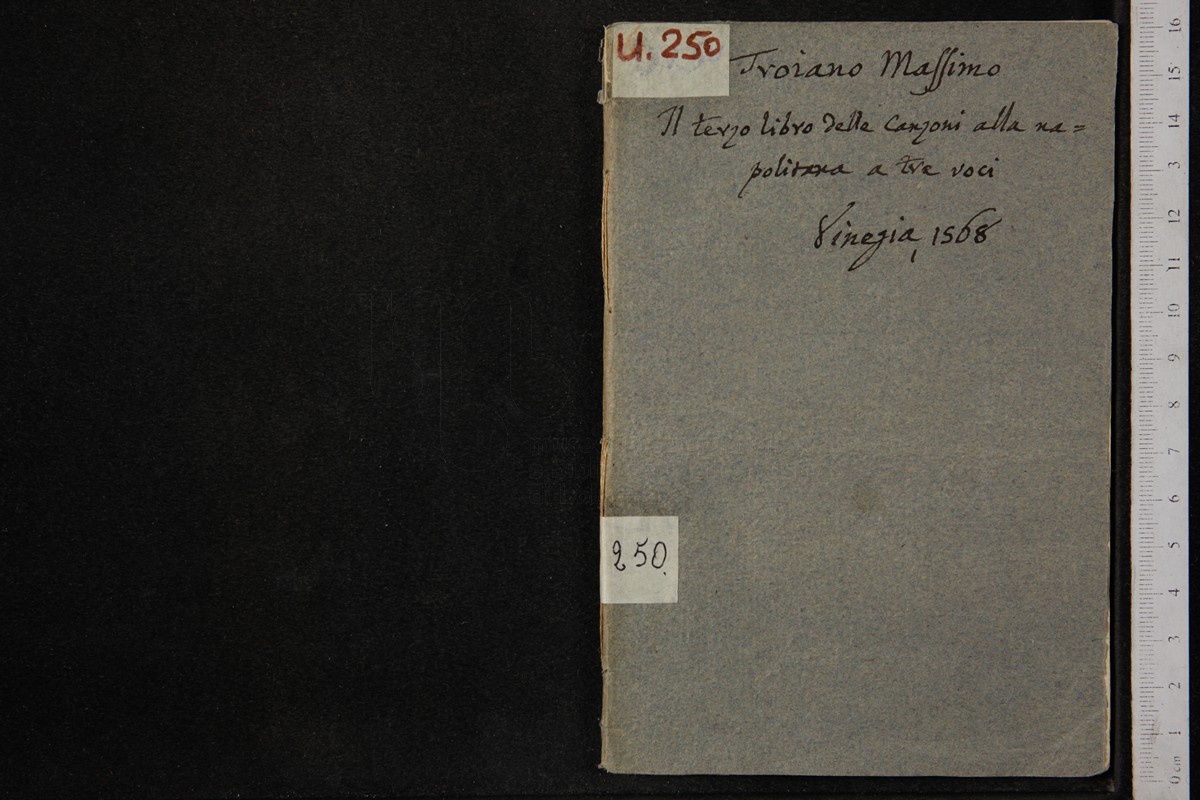 U. 250
Troiano Massimo
Il terzo libro delle Canzoni alla na=
politana a tre voci
Vinegia, 1568
250.
16
15
14
13
12
11
10
9
8
7
6
5
4
3
2
1
0 cm